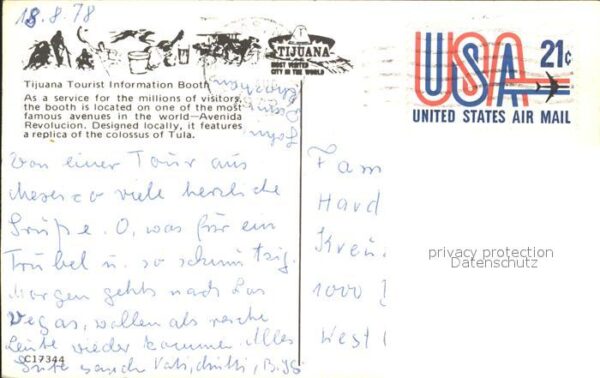 18.8.78
TIJUANA
MOST VISITED
CITY IN THE WORLD
Tijuana Tourist Information Booth
As a service for the millions of visitors,
the booth is located on one of the most
famous avenues in the world—Avenida
Revolucion. Designed locally, it features
a replica of the colossus of Tula.
Von einer Tour aus
viele herzliche
Grüße. O, was für ein
Trubel u. so schmutzig.
Morgen gehts nach Las
Vegas, wollen als reiche
Leute wieder kommen. Alles
Gute
C17344
USA 21c
UNITED STATES AIR MAIL
Fam
Hard
Kreu
1000
West
privacy protection
Datenschutz